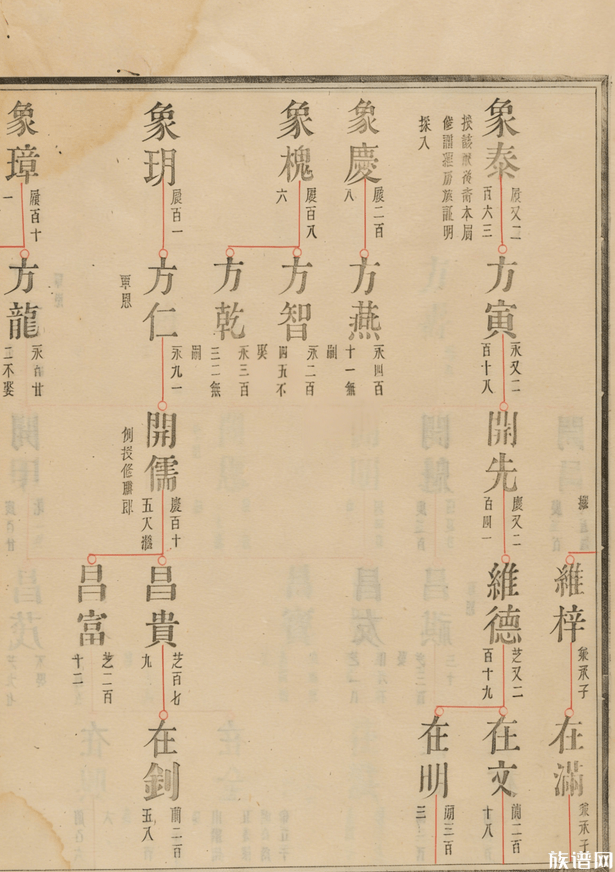 象泰
履又二
百六三
修譜經房族証明
採入
象慶
履二百
八
象槐
履百八
六
象玥
履百一
象璋
履百十
一
方寅
永又二
百十八
方燕
永四百
十一無
嗣
方智
永二百
四五不
娶
方乾
永三百
三二無
嗣
方仁
永九一
方龍
永百廿
二不娶
開先
慶又二
百四一
開儒
慶百十
例授修職郎
維梓
維德
芝又二
百十九
昌貴
芝百七
九
昌富
芝二百
十二
在滿
在文
蘭二百
十八
在明
蘭三百
三
在釗
蘭二百
五八
族谱网